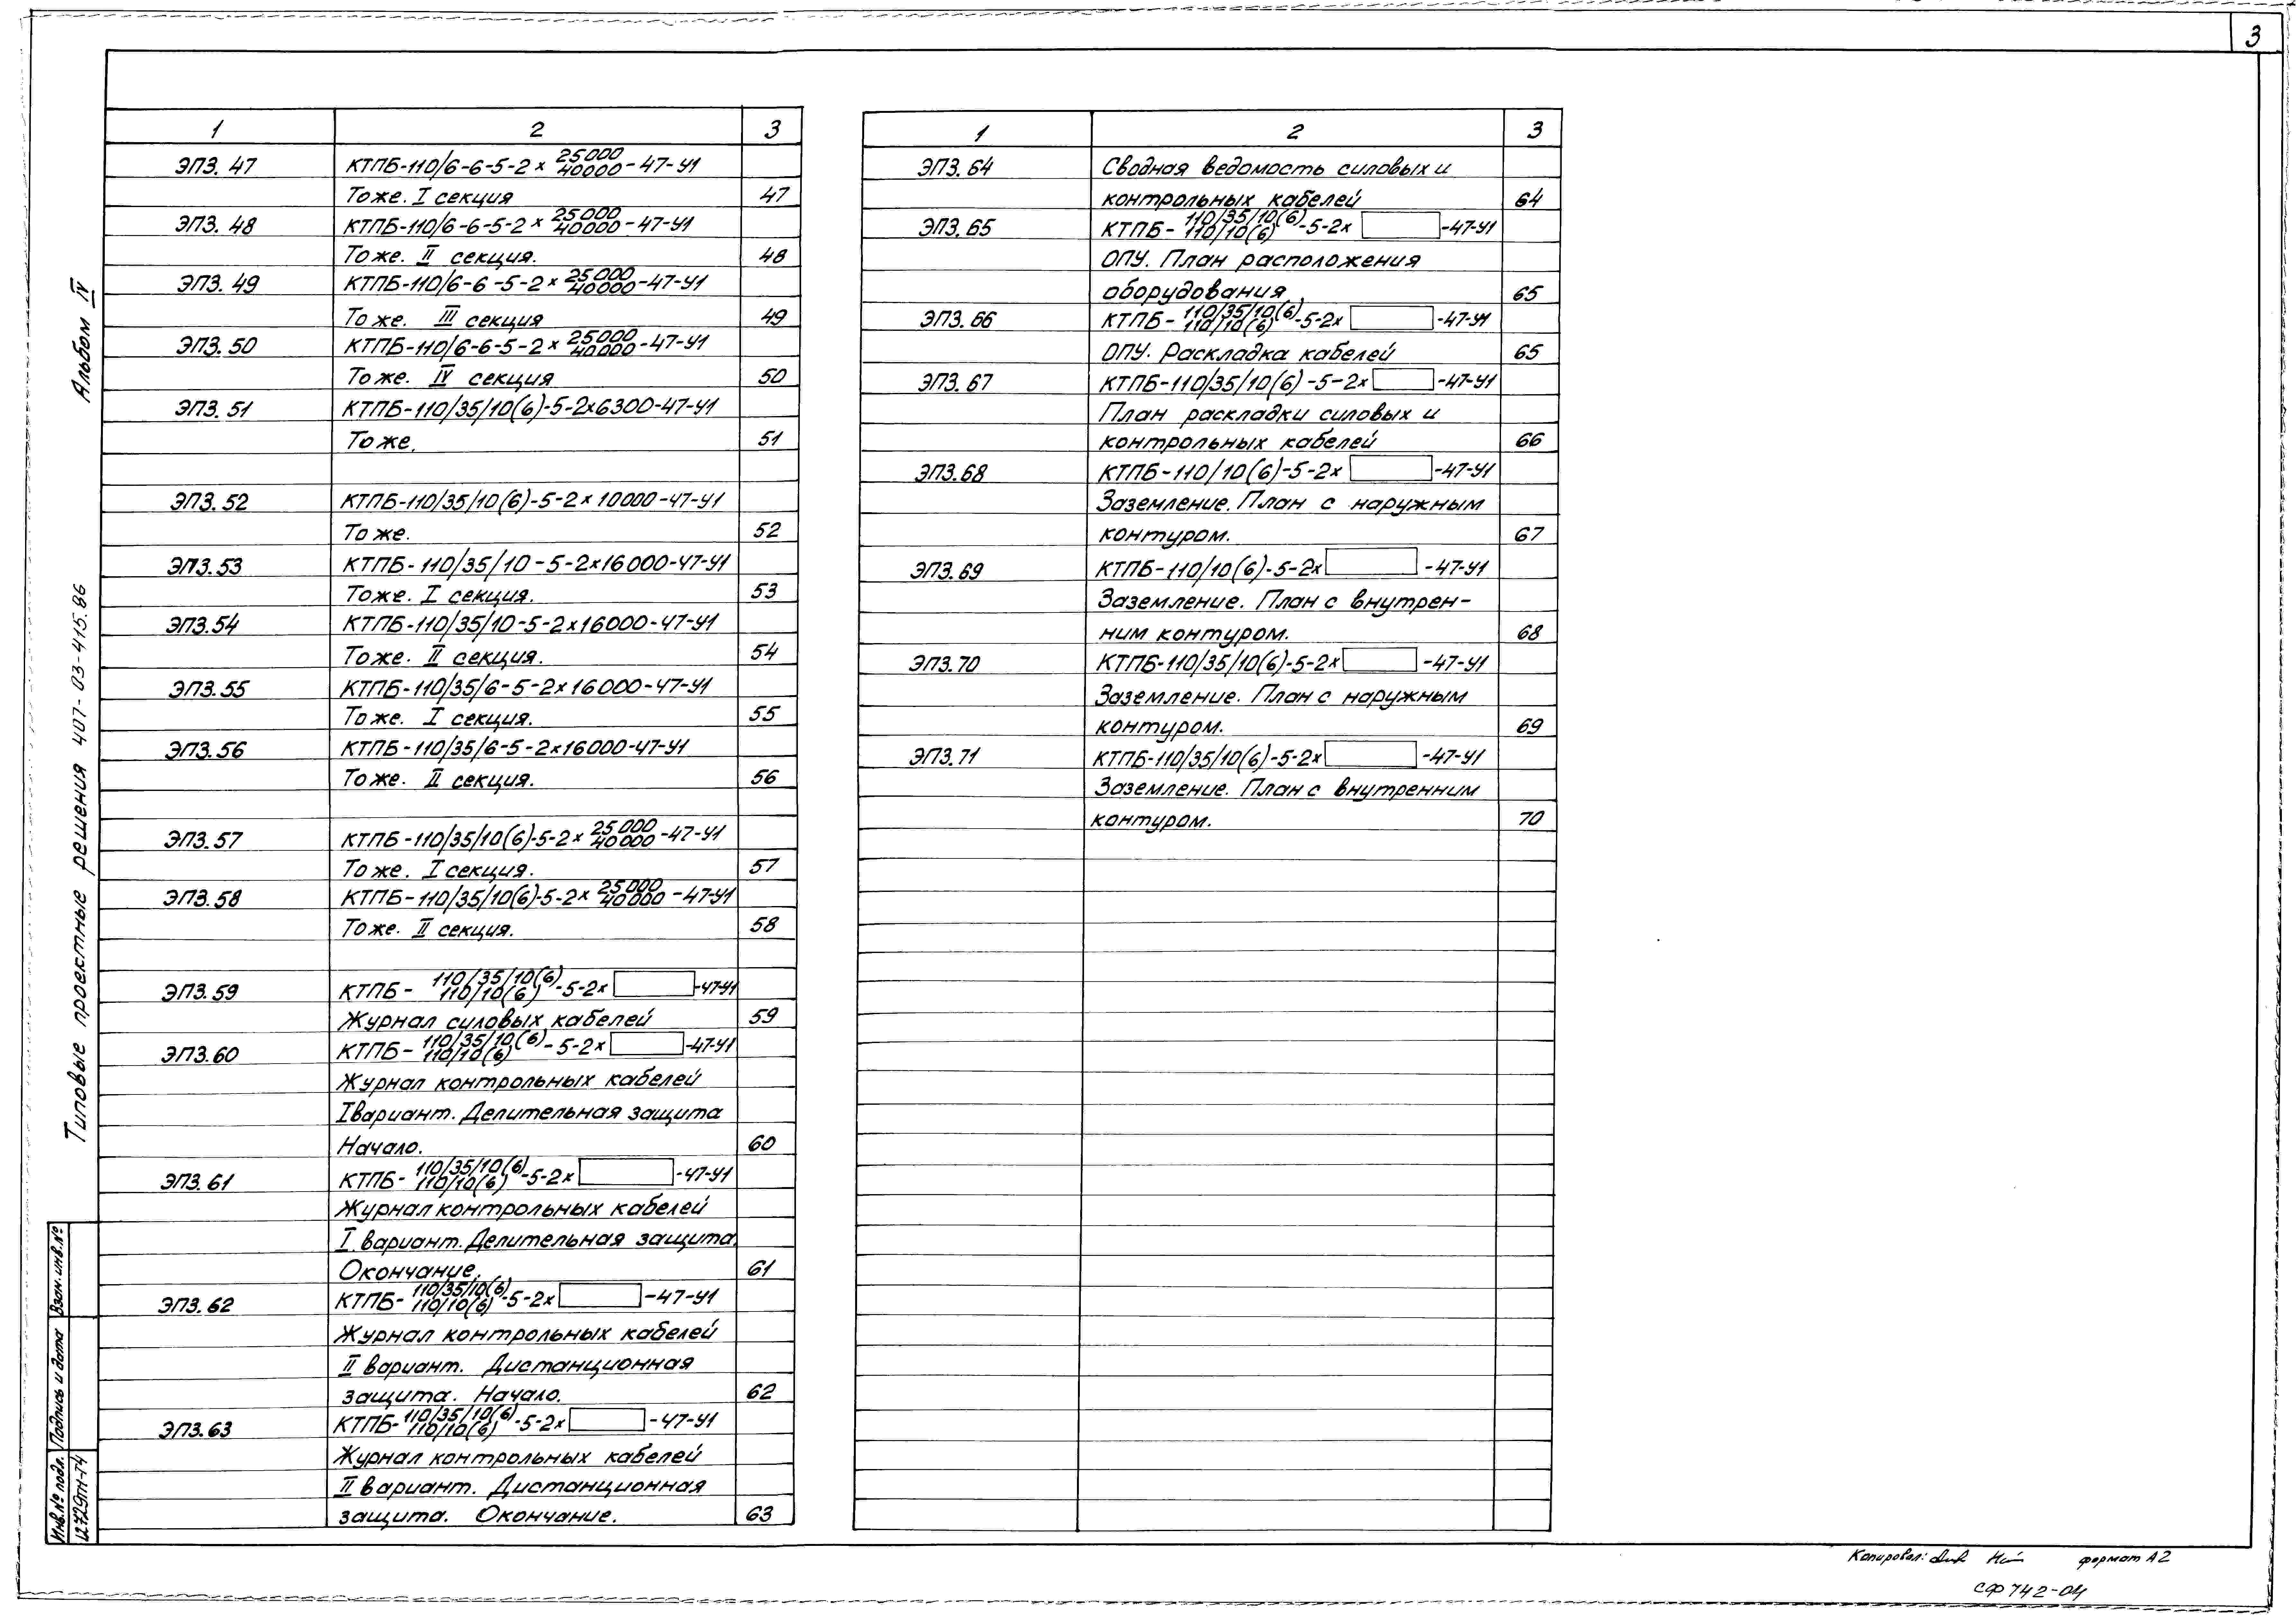 3
Альбом IV
Типовые проектные решения 407-03-415.86
Взам. инв. №
Подпись и дата
Инв. № подл.
12729тм-т4
1 2 3
ЭП3. 47 КТПБ-110/6-6-5-2× 25000/40000 -47-У1
Тоже. I секция 47
ЭП3. 48 КТПБ-110/6-6-5-2× 25000/40000 -47-У1
Тоже. II секция. 48
ЭП3. 49 КТПБ-110/6-6-5-2× 25000/40000 -47-У1
Тоже. III секция 49
ЭП3. 50 КТПБ-110/6-6-5-2× 25000/40000 -47-У1
Тоже. IV секция 50
ЭП3. 51 КТПБ-110/35/10(6)-5-2×6300-47-У1
Тоже. 51
ЭП3. 52 КТПБ-110/35/10(6)-5-2×10000-47-У1
Тоже. 52
ЭП3. 53 КТПБ-110/35/10-5-2×16000-47-У1
Тоже. I секция. 53
ЭП3. 54 КТПБ-110/35/10-5-2×16000-47-У1
Тоже. II секция. 54
ЭП3. 55 КТПБ-110/35/6-5-2×16000-47-У1
Тоже. I секция. 55
ЭП3. 56 КТПБ-110/35/6-5-2×16000-47-У1
Тоже. II секция. 56
ЭП3. 57 КТПБ-110/35/10(6)-5-2× 25000/40000 -47-У1
Тоже. I секция. 57
ЭП3. 58 КТПБ-110/35/10(6)-5-2× 25000/40000 -47-У1
Тоже. II секция. 58
ЭП3. 59 КТПБ- 110/35/10(6) 110/10(6) -5-2× -47-У1
Журнал силовых кабелей 59
ЭП3. 60 КТПБ- 110/35/10(6) 110/10(6) -5-2× -47-У1
Журнал контрольных кабелей
I вариант. Делительная защита
Начало. 60
ЭП3. 61 КТПБ- 110/35/10(6) 110/10(6) -5-2× -47-У1
Журнал контрольных кабелей
I вариант. Делительная защита.
Окончание. 61
ЭП3. 62 КТПБ- 110/35/10(6) 110/10(6) -5-2× -47-У1
Журнал контрольных кабелей
II вариант. Дистанционная
защита. Начало. 62
ЭП3. 63 КТПБ- 110/35/10(6) 110/10(6) -5-2× -47-У1
Журнал контрольных кабелей
II вариант. Дистанционная
защита. Окончание. 63
1 2 3
ЭП3. 64 Сводная ведомость силовых и
контрольных кабелей 64
ЭП3. 65 КТПБ- 110/35/10(6) 110/10(6) -5-2× -47-У1
ОПУ. План расположения
оборудования 65
ЭП3. 66 КТПБ- 110/35/10(6) 110/10(6) -5-2× -47-У1
ОПУ. Раскладка кабелей 65
ЭП3. 67 КТПБ-110/35/10(6)-5-2× -47-У1
План раскладки силовых и
контрольных кабелей 66
ЭП3. 68 КТПБ-110/10(6)-5-2× -47-У1
Заземление. План с наружным
контуром. 67
ЭП3. 69 КТПБ-110/10(6)-5-2× -47-У1
Заземление. План с внутрен-
ним контуром. 68
ЭП3. 70 КТПБ-110/35/10(6)-5-2× -47-У1
Заземление. План с наружным
контуром. 69
ЭП3. 71 КТПБ-110/35/10(6)-5-2× -47-У1
Заземление. План с внутренним
контуром. 70
Копировал: формат А2
СФ 742-04